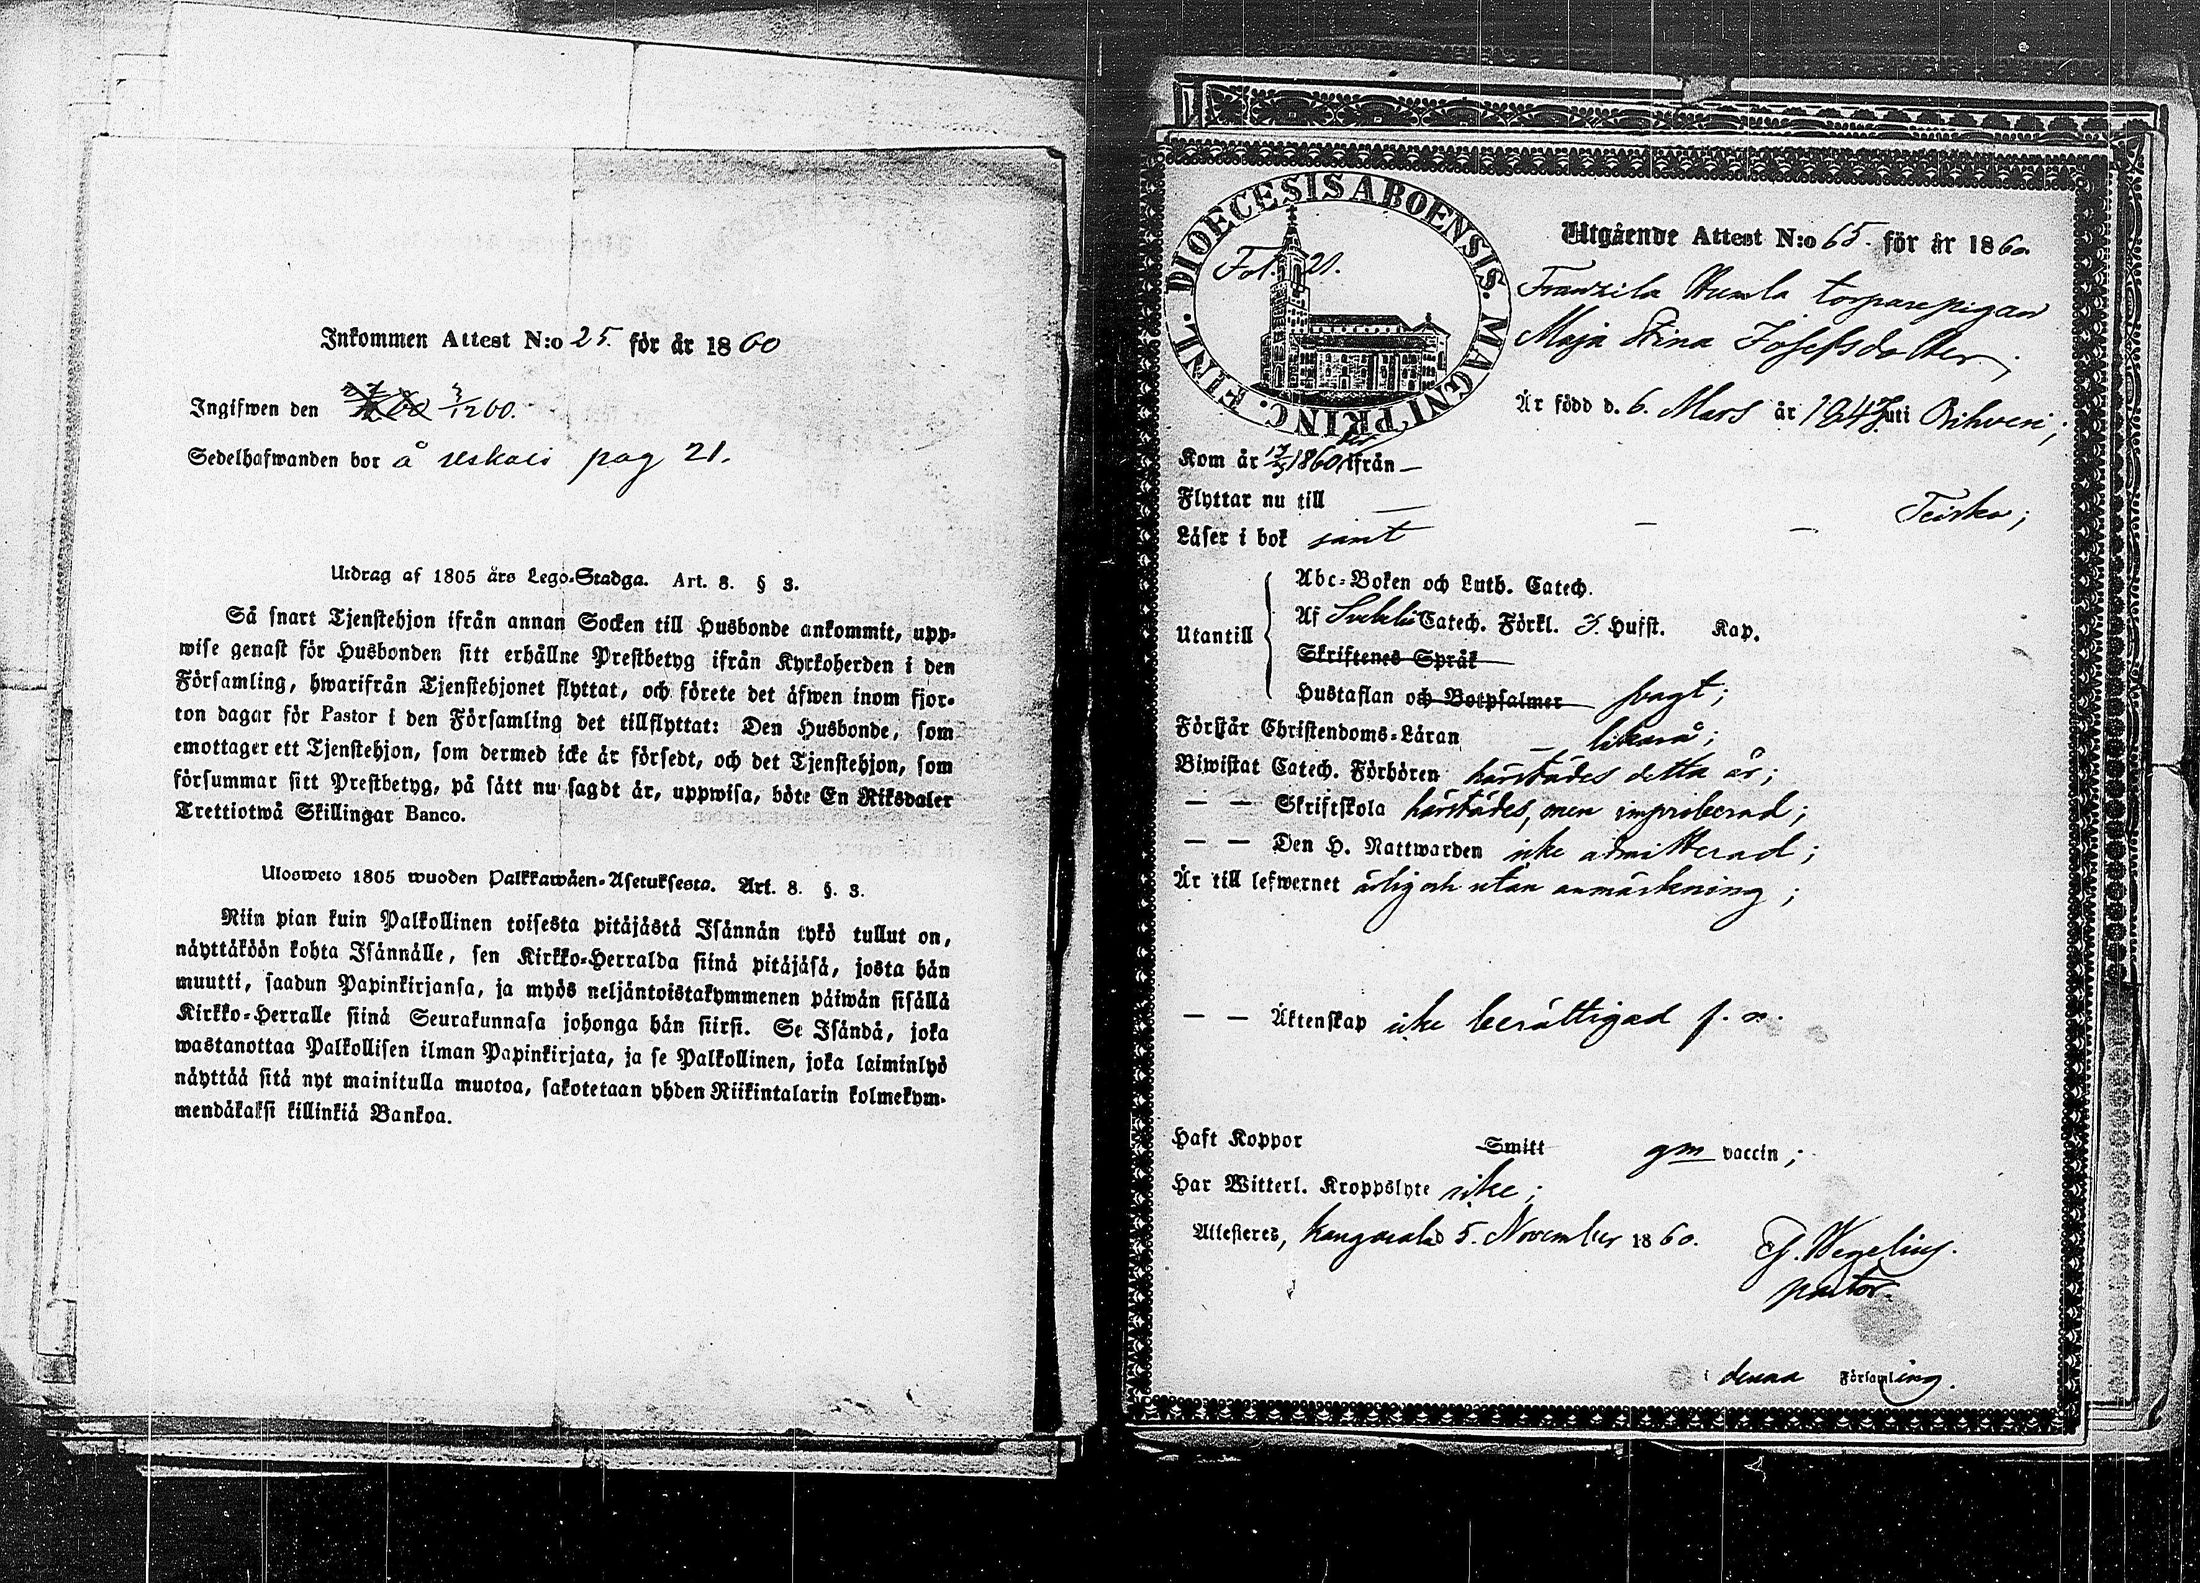 Inkommen Attest N:o 25. för år 1860
Ingifwen den 3/12 60.
Sedelhafwanden bor å Uskali pag 21.
Utdrag af 1805 års Lego-Stadga. Art. 8. § 3.
Så snart Tjenstehjon ifrån annan Socken till Husbonde ankommit, upp-
wise genast för Husbonden sitt erhållne Prestbetyg ifrån Kyrkoherden i den
Församling, hwarifrån Tjenstehjonet flyttat, och förete det äfwen inom fjor-
ton dagar för Pastor i den Församling det tillflyttat: Den Husbonde, som
emottager ett Tjenstehjon, som dermed icke är försedt, och det Tjenstehjon, som
försummar sitt Prestbetyg, på sätt nu sagdt är, uppwisa, böte En Riksdaler
Trettiotwå Skillingar Banco.
Ulosweto 1805 wuoden Palkkawäen-Asetuksesta. Art. 8. §. 3.
Niin pian kuin Palkollinen toisesta pitäjästä Isännän tykö tullut on,
näyttäköön kohta Isännälle, sen Kirkko-Herralda siinä pitäjäsä, josta hän
muutti, saadun Papinkirjansa, ja myös neljäntoistakymmenen päiwän sisällä
Kirkko-Herralle siinä Seurakunnasa johonga hän siirsi. Se Isändä, joka
wastanottaa Palkollisen ilman Papinkirjata, ja se Palkollinen, joka laiminlyö
näyttää sitä nyt mainitulla muotoa, sakotetaan yhden Riikintalarin kolmekym-
mendäkaksi killinkiä Bankoa.
DIOECESIS ABOENSIS. MAGNI PRINC. FINL.
Fol. 21.
Utgående Attest N:o 65. för år 1860.
Franzila Humla torparepigan
Maja Stina Josefsdotter,
Är född d. 6. Mars år 1843 uti Orihvesi;
Kom år 1860 ifrån —
Flyttar nu till — — — Teisko;
Läser i bok samt
Utantill
Abc-Boken och Luth. Catech.
Af Svebelii Catech. Förkl. 3. Hufst. Kap.
Skriftenes Språk
Hustaflan och Botpsalmer svagt;
Förstår Christendoms-Läran — likaså;
Biwistat Catech. Förhören härstädes detta år;
— — Skriftskola härstädes, men improberad;
— — Den H. Nattwarden icke admitterad;
Är till lefwernet ärlig och utan anmärkning;
— — Äktenskap icke berättigad f. n.
Haft Koppor Smitt gm vaccin;
Har Witterl. Kroppslyte icke;
Attesteres, Kangasala d 5. November 1860. G. Wegelius.
pastor.
i denna Församling.